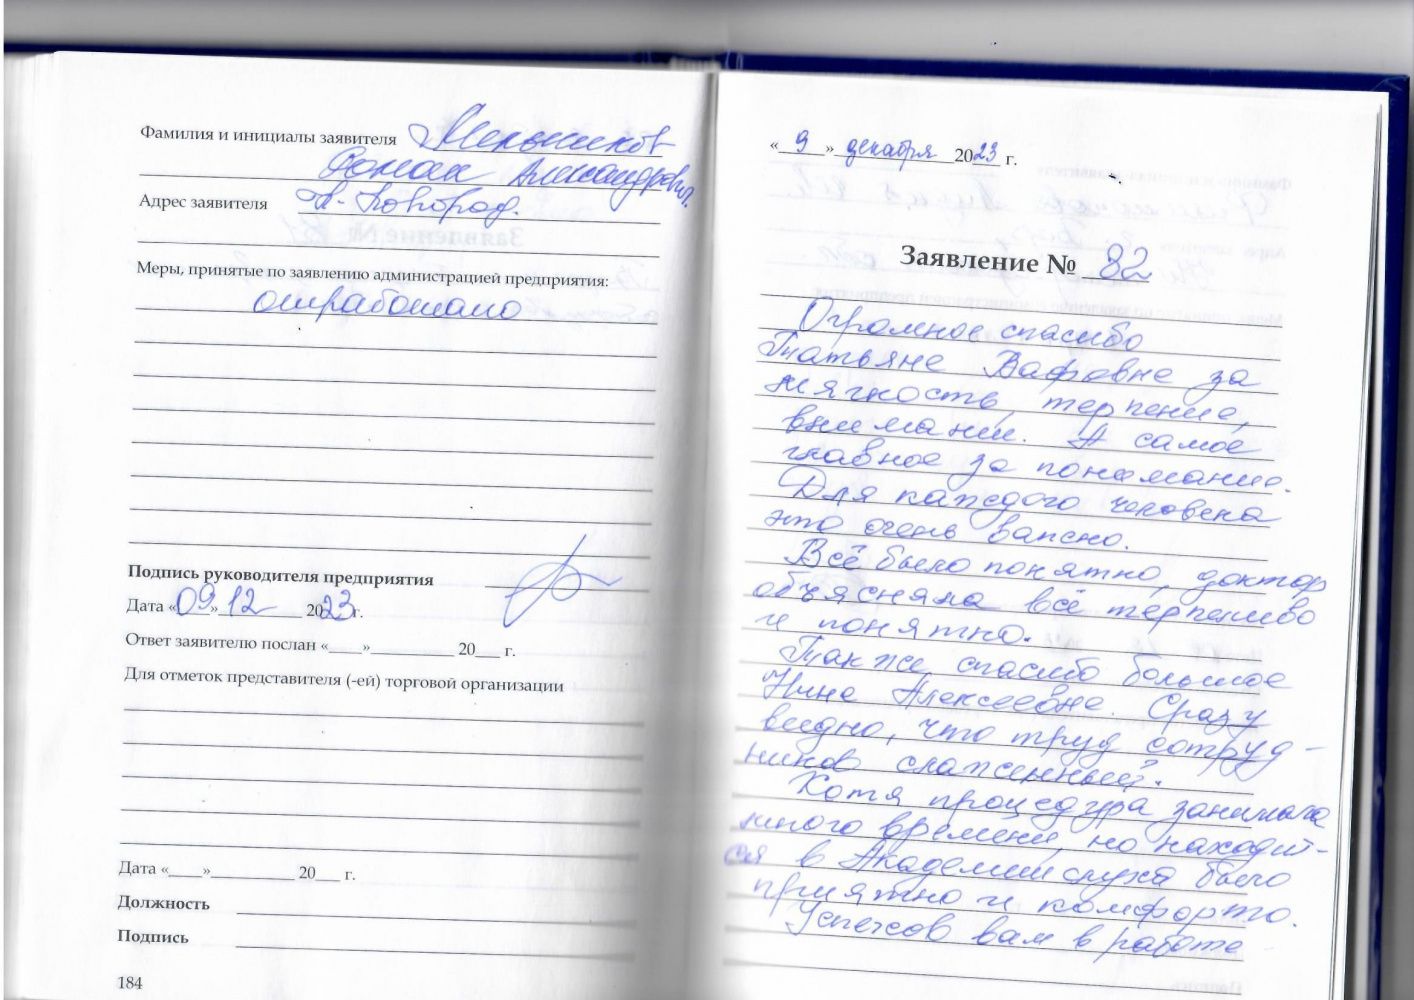 Фамилия и инициалы заявителя Мельников
Роман Александрович
Адрес заявителя Н-Новгород.
Меры, принятые по заявлению администрацией предприятия:
отработано
Подпись руководителя предприятия
Дата «09» 12 2023 г.
Ответ заявителю послан «____»__________ 20___ г.
Для отметок представителя (-ей) торговой организации
Дата «____»__________ 20___ г.
Должность
Подпись
184
«9» декабря 2023 г.
Заявление № 82
Огромное спасибо
Татьяне Вафовне за
мягкость, терпение,
внимание. А самое
главное за понимание.
Для каждого человека
это очень важно.
Всё было понятно, доктор
объясняла всё терпеливо
и понятно.
Также спасибо большое
Нине Алексеевне. Сразу
видно, что труд сотруд-
ников слаженный.
Хотя процедура занимала
много времени, но находит-
ся в Академии слуха было
приятно и комфорто.
Успехов вам в работе